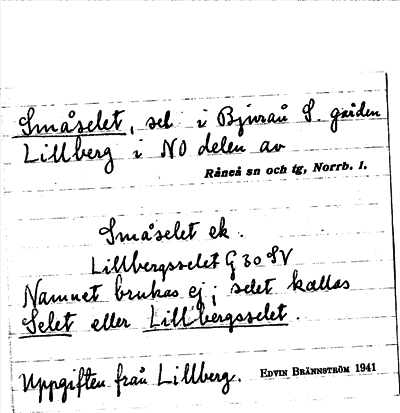 Småselet, sel i Bjuraå S. gården
Lillberg i NO delen av
Råneå sn och tg, Norrb. l.
Småselet ek.
Lillbergsselet G 30 SV
Namnet brukas ej; selet kallas
Selet eller Lillbergsselet.
Uppgiften från Lillberg.
EDVIN BRÄNNSTRÖM 1941